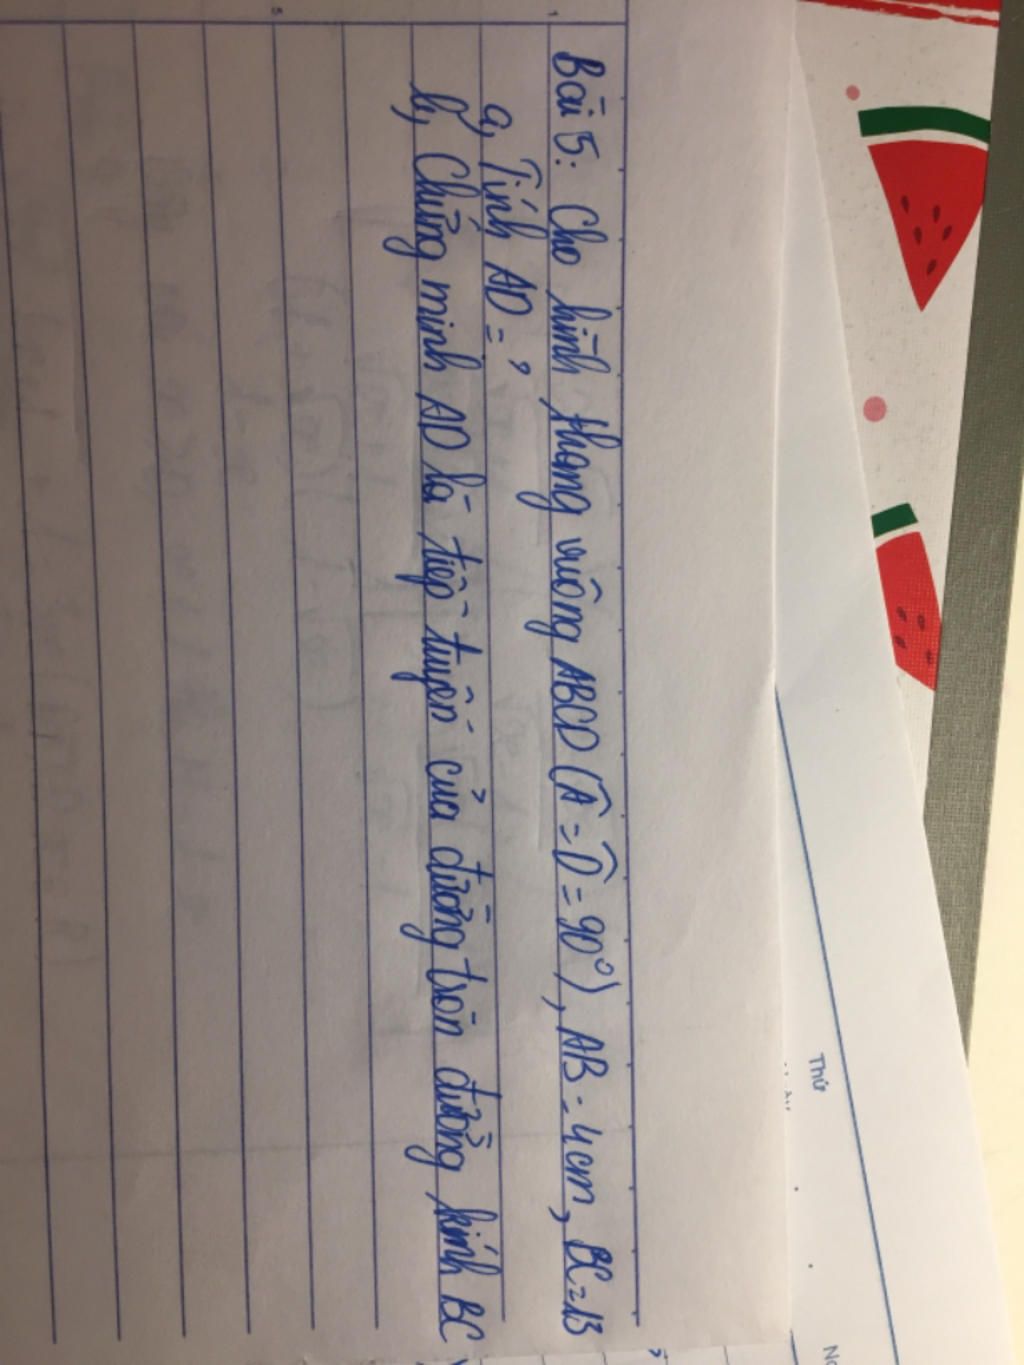 Bài 5: Cho hình thang vuông ABCD (Â = D̂ = 90°), AB = 4cm, BC = 13
a, Tính AD = ?
b, Chứng minh AD là tiếp tuyến của đường tròn đường kính BC
Thứ